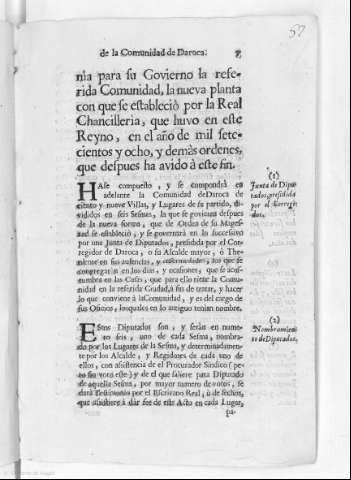 57
de la Comunidad de Daroca. 7
nia para su Govierno la refe-
rida Comunidad, la nueva planta
con que se estableciò por la Real
Chancilleria, que huvo en este
Reyno, en el año de mil sete-
cientos y ocho, y demàs ordenes,
que despues ha avido à este fin.
(1)
Junta de Diputados, presidida
por el Corregidor.
HAse compuesto, y se compondrà en
adelante la Comunidad de Daroca de
ciento y nueve Villas, y Lugares de su partido, di-
vididos en seis Sesmas, la que se govierna despues
de la nueva forma, que de Orden de su Mages-
tad se estableciò, y se governarà en lo successivo
por una Junta de Diputados, presidida por el Cor-
regidor de Daroca, ò su Alcalde mayor, ò The-
niente en sus ausencias, y enfermedades, los que se
congregaràn en los dias, y ocasiones, que se acos-
tumbra en las Casas, que para ello tiene la Comu-
nidad en la referida Ciudad, à fin de tratar, y hacer
lo que conviene à la Comunidad, y es del cargo de
sus Oficios, los quales en lo antiguo tenian nombre.
(2)
Nombramien-
to de Diputados,
EStos Diputados son, y seràn en nume-
ro seis, uno de cada Sesma, nombra-
do por los Lugares de la Sesma, y determinadamen-
te por los Alcalde, y Regidores de cada uno de
ellos, con assistencia de el Procurador Sindico (pe-
ro sin voto este) y de el que saliere para Diputado
de aquella Sesma, por mayor numero de votos, se
darà Testimonio por el Escrivano Real, ò de fechos,
que assistiere à dàr fee de este Acto en cada Lugar,
pa-